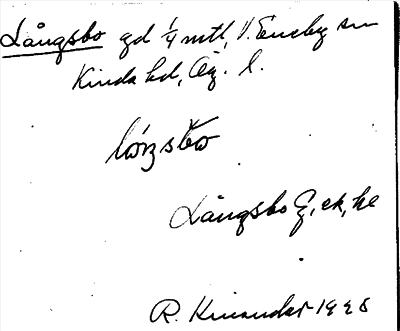 Långsbo gd 1/4 mtl, V. Eneby sn
Kinda hd, Ög. l.
Långsbo G, ek, he
R. Kinander